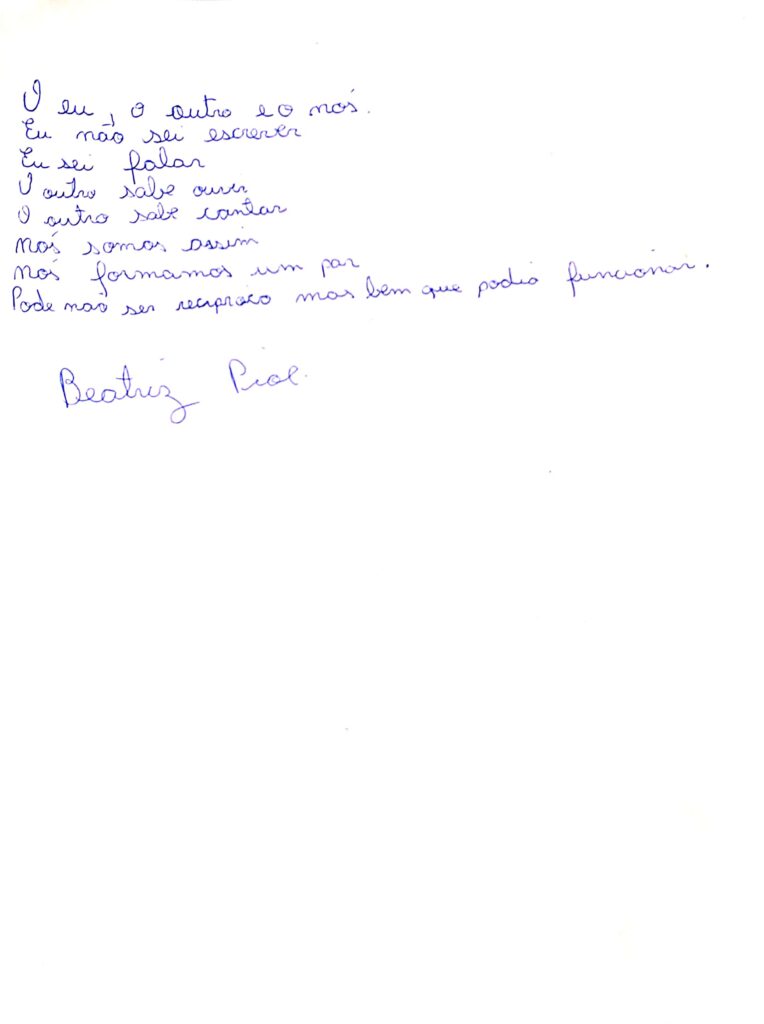 O eu, o outro e o nós.
Eu não sei escrever
Eu sei falar
O outro sabe ouvir
O outro sabe cantar
Nós somos assim
Nós formamos um par
Pode não ser reciproco mas bem que podia funcionar.
Beatriz